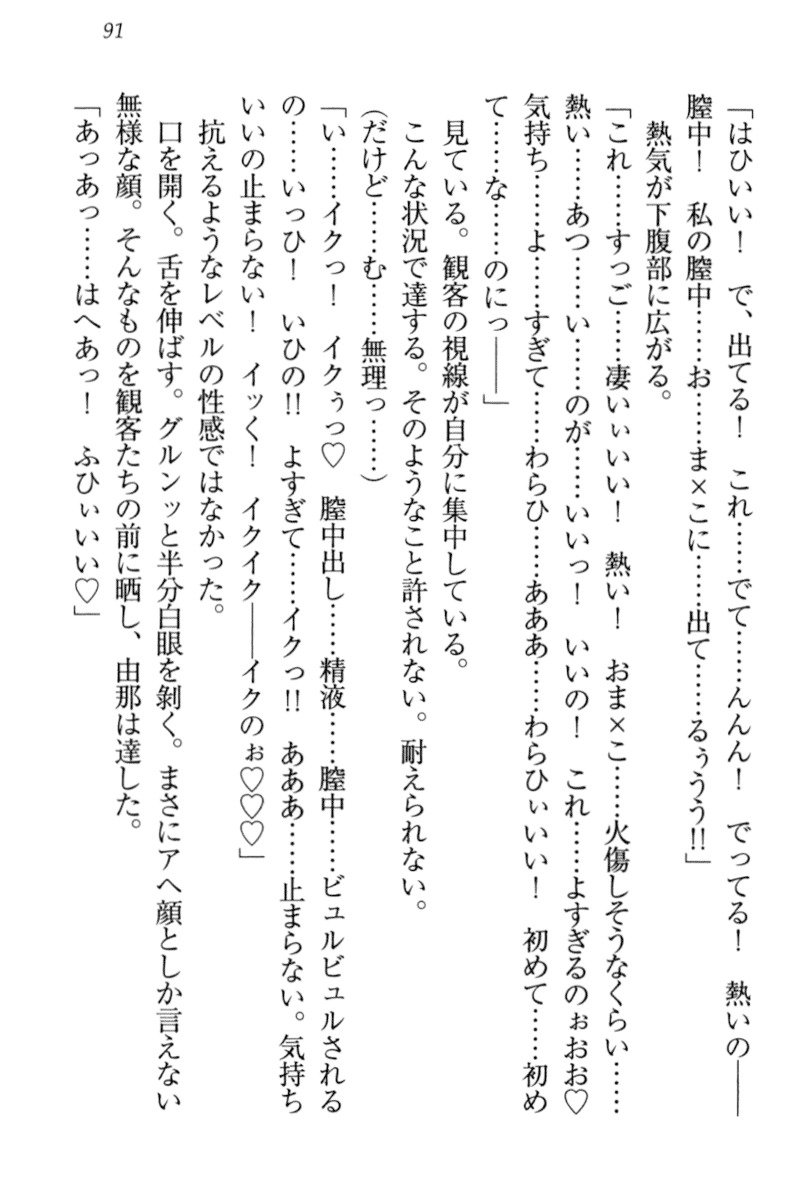 91
「はひいい！　で、出てる！　これ……でて……んんん！　でってる！　熱いの――
膣中！　私の膣中……お……ま×こに……出て……るぅうう!!」
　熱気が下腹部に広がる。
「これ……すっご……凄いぃいい！　熱い！　おま×こ……火傷しそうなくらい……
熱い……あつ……い……のが……いいっ！　いいの！　これ……よすぎるのぉおお♡
気持ち……よ……すぎて……わらひ……あああ……わらひぃいい！　初めて……初め
て……な……のにっ――」
　見ている。観客の視線が自分に集中している。
　こんな状況で達する。そのようなこと許されない。耐えられない。
（だけど……む……無理っ……）
「い……イクっ！　イクぅっ♡　膣中出し……精液……膣中……ビュルビュルされる
の……いっひ！　いひの!!　よすぎて……イクっ!!　あああ……止まらない。気持ち
いいの止まらない！　イッく！　イクイク――イクのぉ♡♡♡」
　抗えるようなレベルの性感ではなかった。
　口を開く。舌を伸ばす。グルンッと半分白眼を剥く。まさにアヘ顔としか言えない
無様な顔。そんなものを観客たちの前に晒し、由那は達した。
「あっあっ……はへあっ！　ふひぃいい♡」